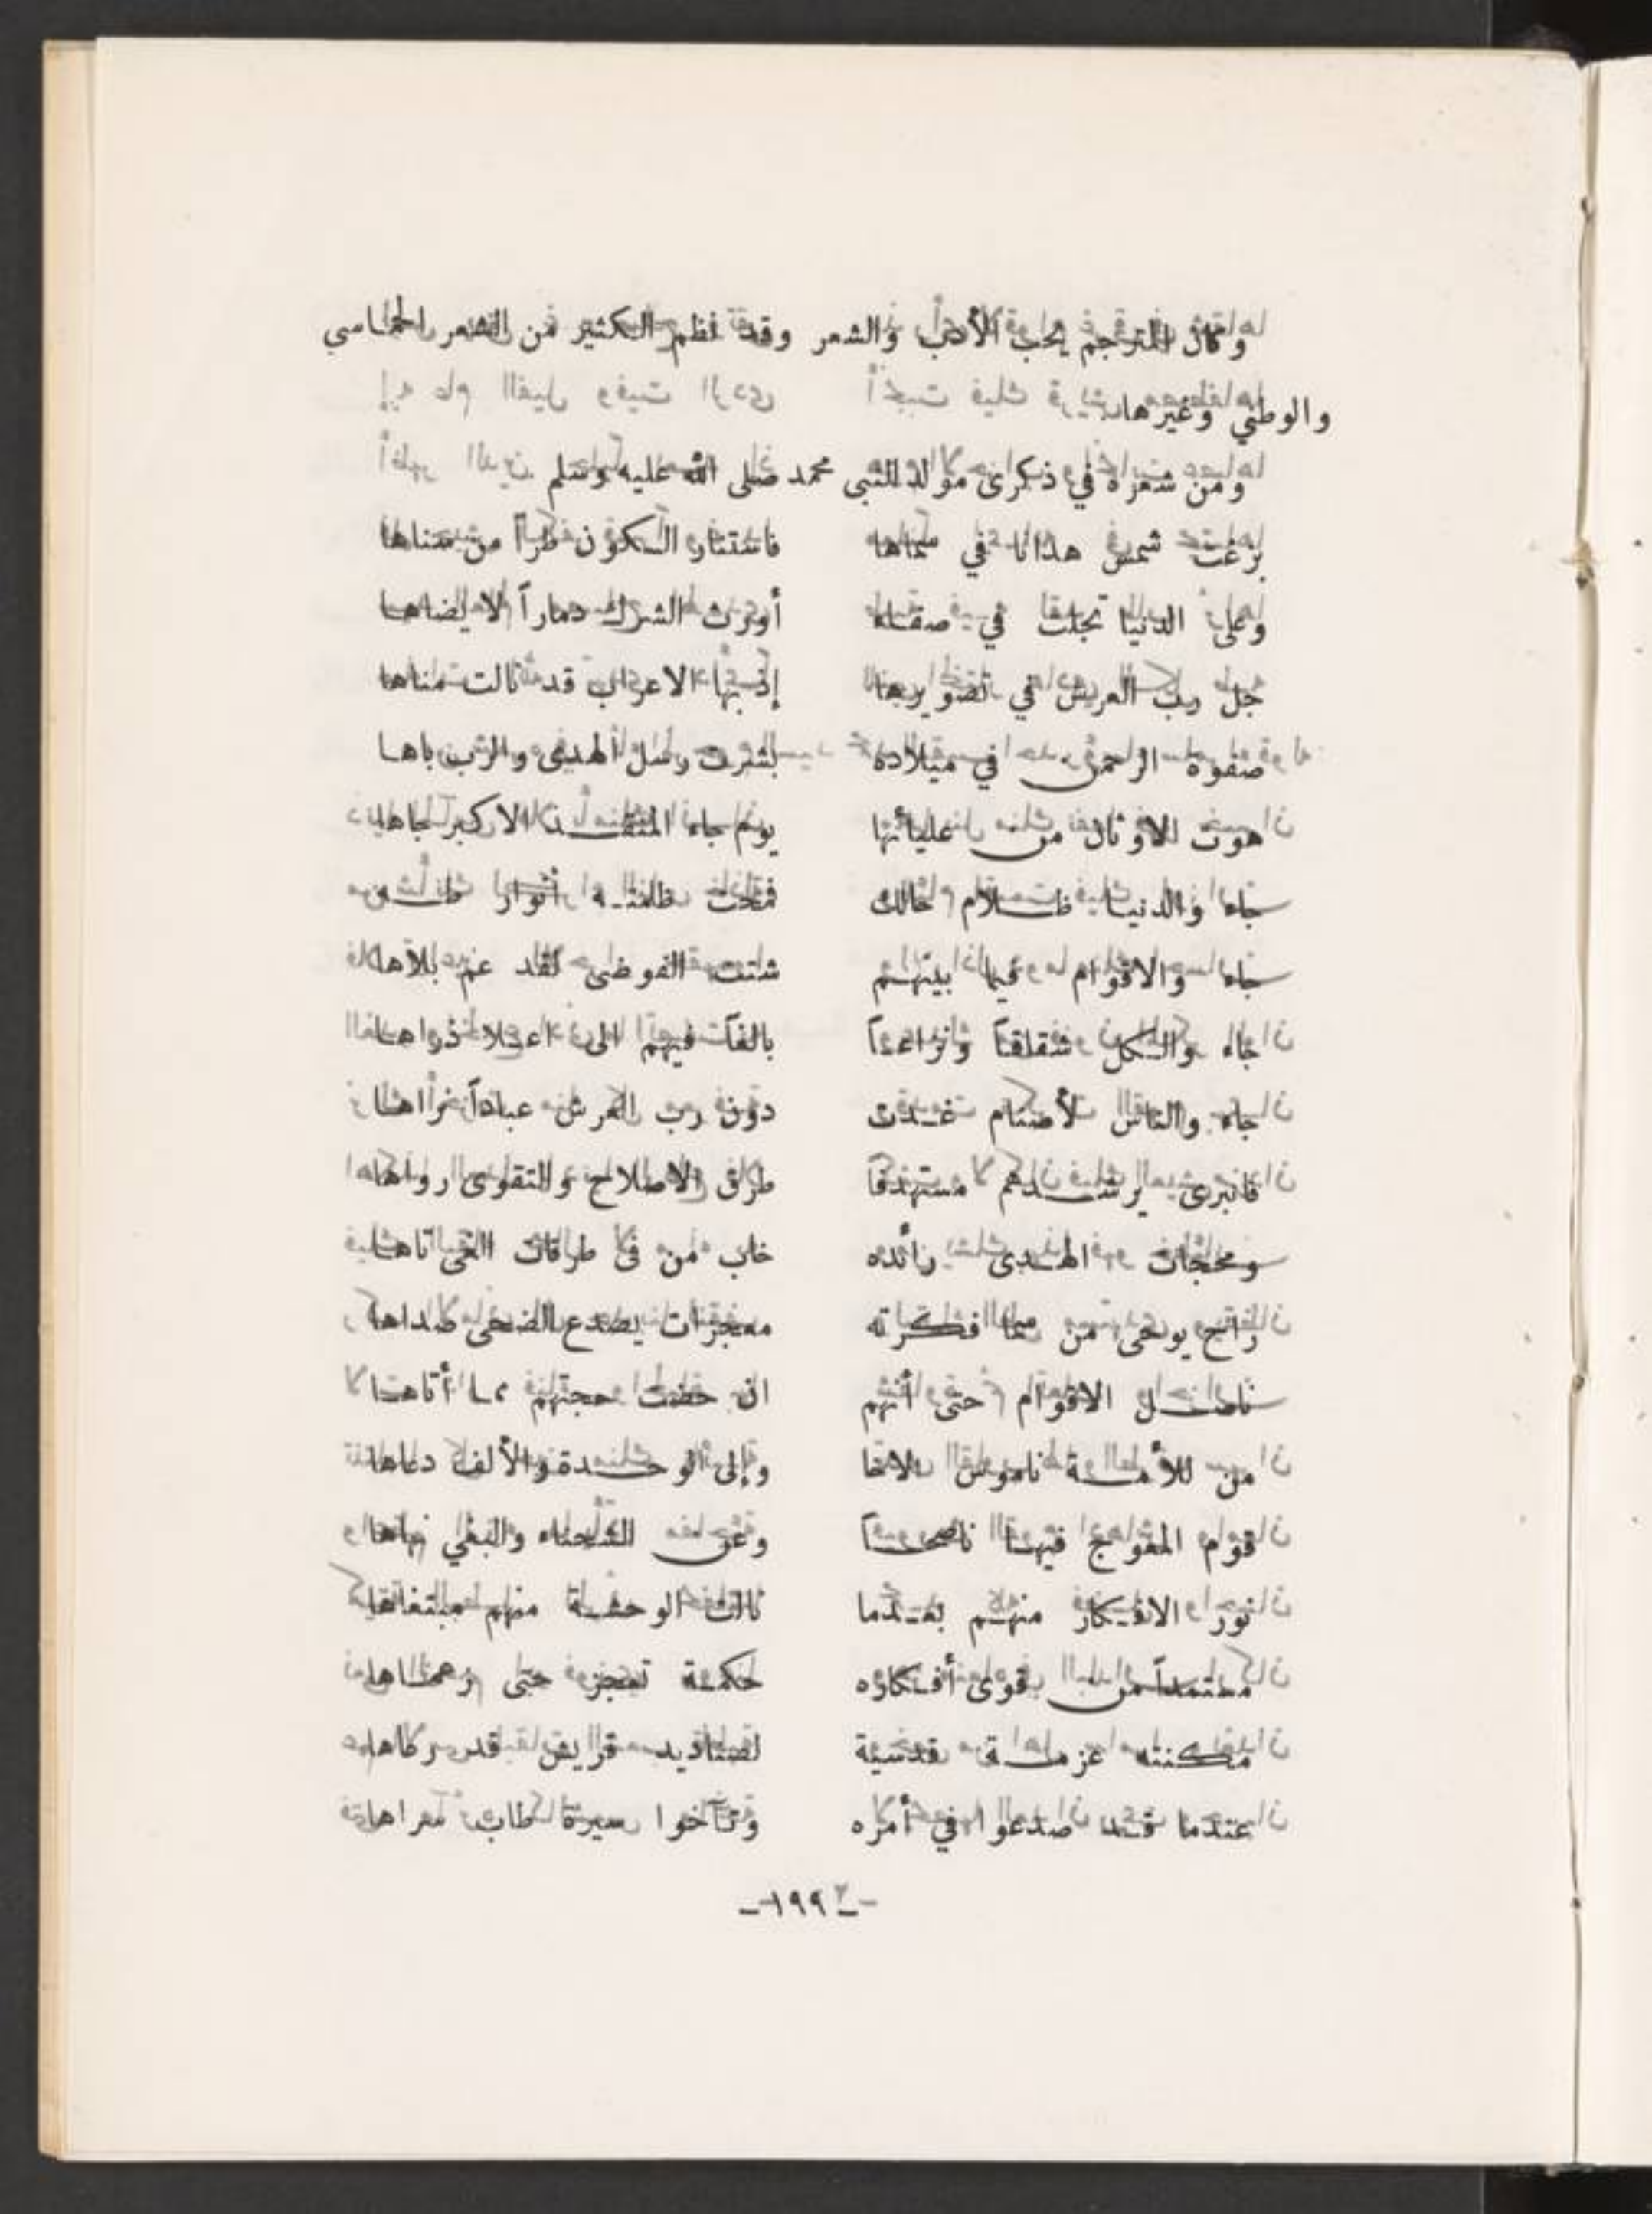 وكان المترجم يحب الأدب والشعر وقد نظم الكثير من الشعر الحماسي
والوطني وغيرها.
ومن شعره في ذكرى مولد النبي محمد صلى الله عليه وسلم
بزغت شمس هدانا في سماها فاستنار الكون طراً من سناها
وعلى الدنيا تجلت في صفاء أورث الشرك دماراً لا يضاها
جل رب العرش في تصويرها إذ بها الاعراب قد نالت مناها
صفوة الرحمن في ميلاده بشرت رسل الهدى والرب باها
هوت الاوثان من عليائها يوم جاء المنقذ الاكبر جاها
جاء والدنيا ظلام حالك فمحت ظلمته أنوار طه
جاء والاقوام فيما بينهم شتت الفوضى لقد عم بلاها
جاء والكل شقاقاً ونزاعاً بالغاً فيهم الى اعلا ذراها
جاء والناس لأصنام غدت دون رب العرش عباداً
فانبرى يرشدهم مستهدفاً طرق الاصلاح والتقوى
ومحجات الهدى رائده خاب من في طرقات الغي تاها
راح يوحى من سما فكرته معجزات يصدع الضحى صداها
ناضل الاقوام حتى أنهم ان حضت حجتهم مما أتاها
من للأمة ناموس الاخا وإلى الوحدة والألف دعاها
قوم المعوج فيها ناصحاً وعن الشحناء والبغي نهاها
نور الافكار منهم بعدما نالت الوحشة منهم مبتغاها
معتمداً من قوى أفكاره حكمة تعجز حتى
مكنته عزمة قدسية لصناديد قريش قد
عندما قد صدعوا في أمره وتآخوا سيرة طاب سراها
-١٩٩-